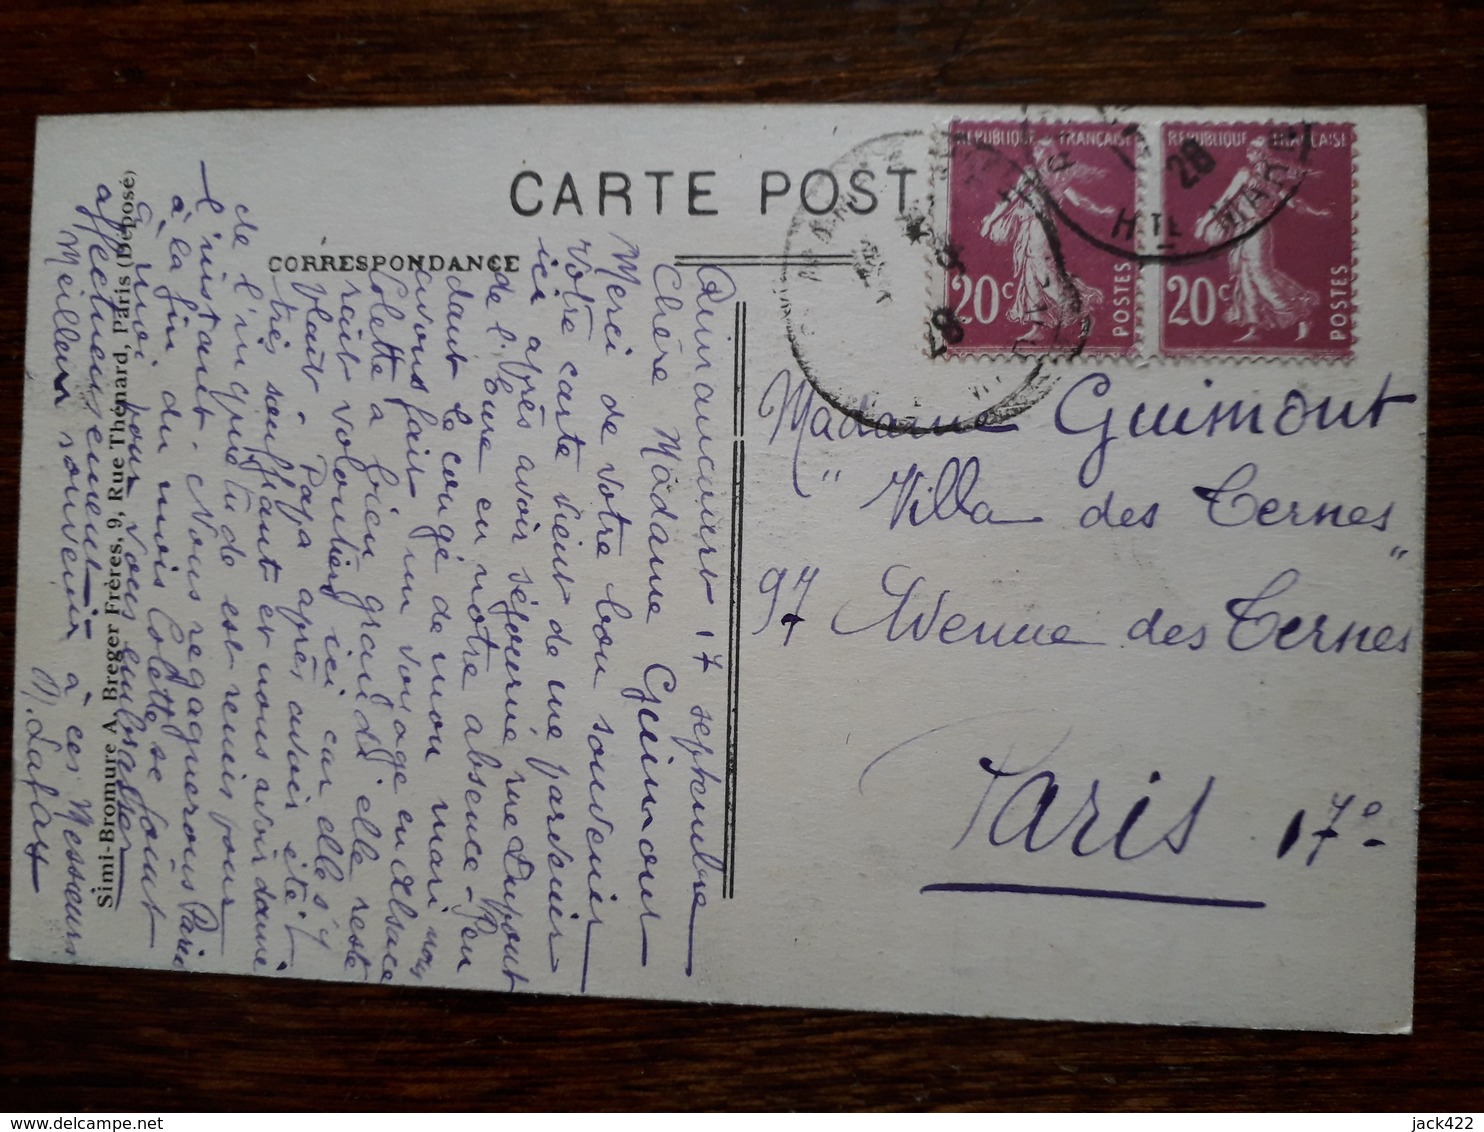 CARTE POST
CORRESPONDANCE
REPUBLIQUE FRANÇAISE
20c
POSTES
REPUBLIQUE FRANÇAISE
20c
POSTES
28
28
HTE MARN
Madame Guimont
"Villa des Ternes"
97 Avenue des Ternes
Paris 17e
17 septembre
Chère Madame Guimont
Merci de votre bon souvenir
votre carte vient de me parvenir
ici après avoir séjourné rue Dupont
de l'Eure en notre absence - Pen
dant le congé de mon mari nous
avons fait un voyage en Alsace
Colette a bien grandi elle reste
rait volontiers ici car elle s'y
plaît. Papa après avoir été
très souffrant et nous avoir donné
de l'inquiétude est remis pour
l'instant. Nous regagnerons Paris
à la fin du mois Colette se joint
à moi pour vous embrasser
affectueusement
Meilleur souvenir à ces Messieurs
Simi-Bromure A. Breger Frères, 9, Rue Thénard, Paris (Déposé)
jack422